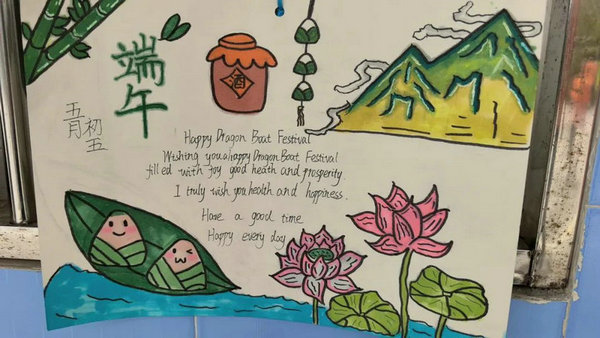 端午
酒
五月
初五
Happy Dragon Boat Festival
Wishing you a happy Dragon Boat Festival
filled with joy good heath and prosperity
I truly wish you health and happiness.
Have a good time
Happy every day